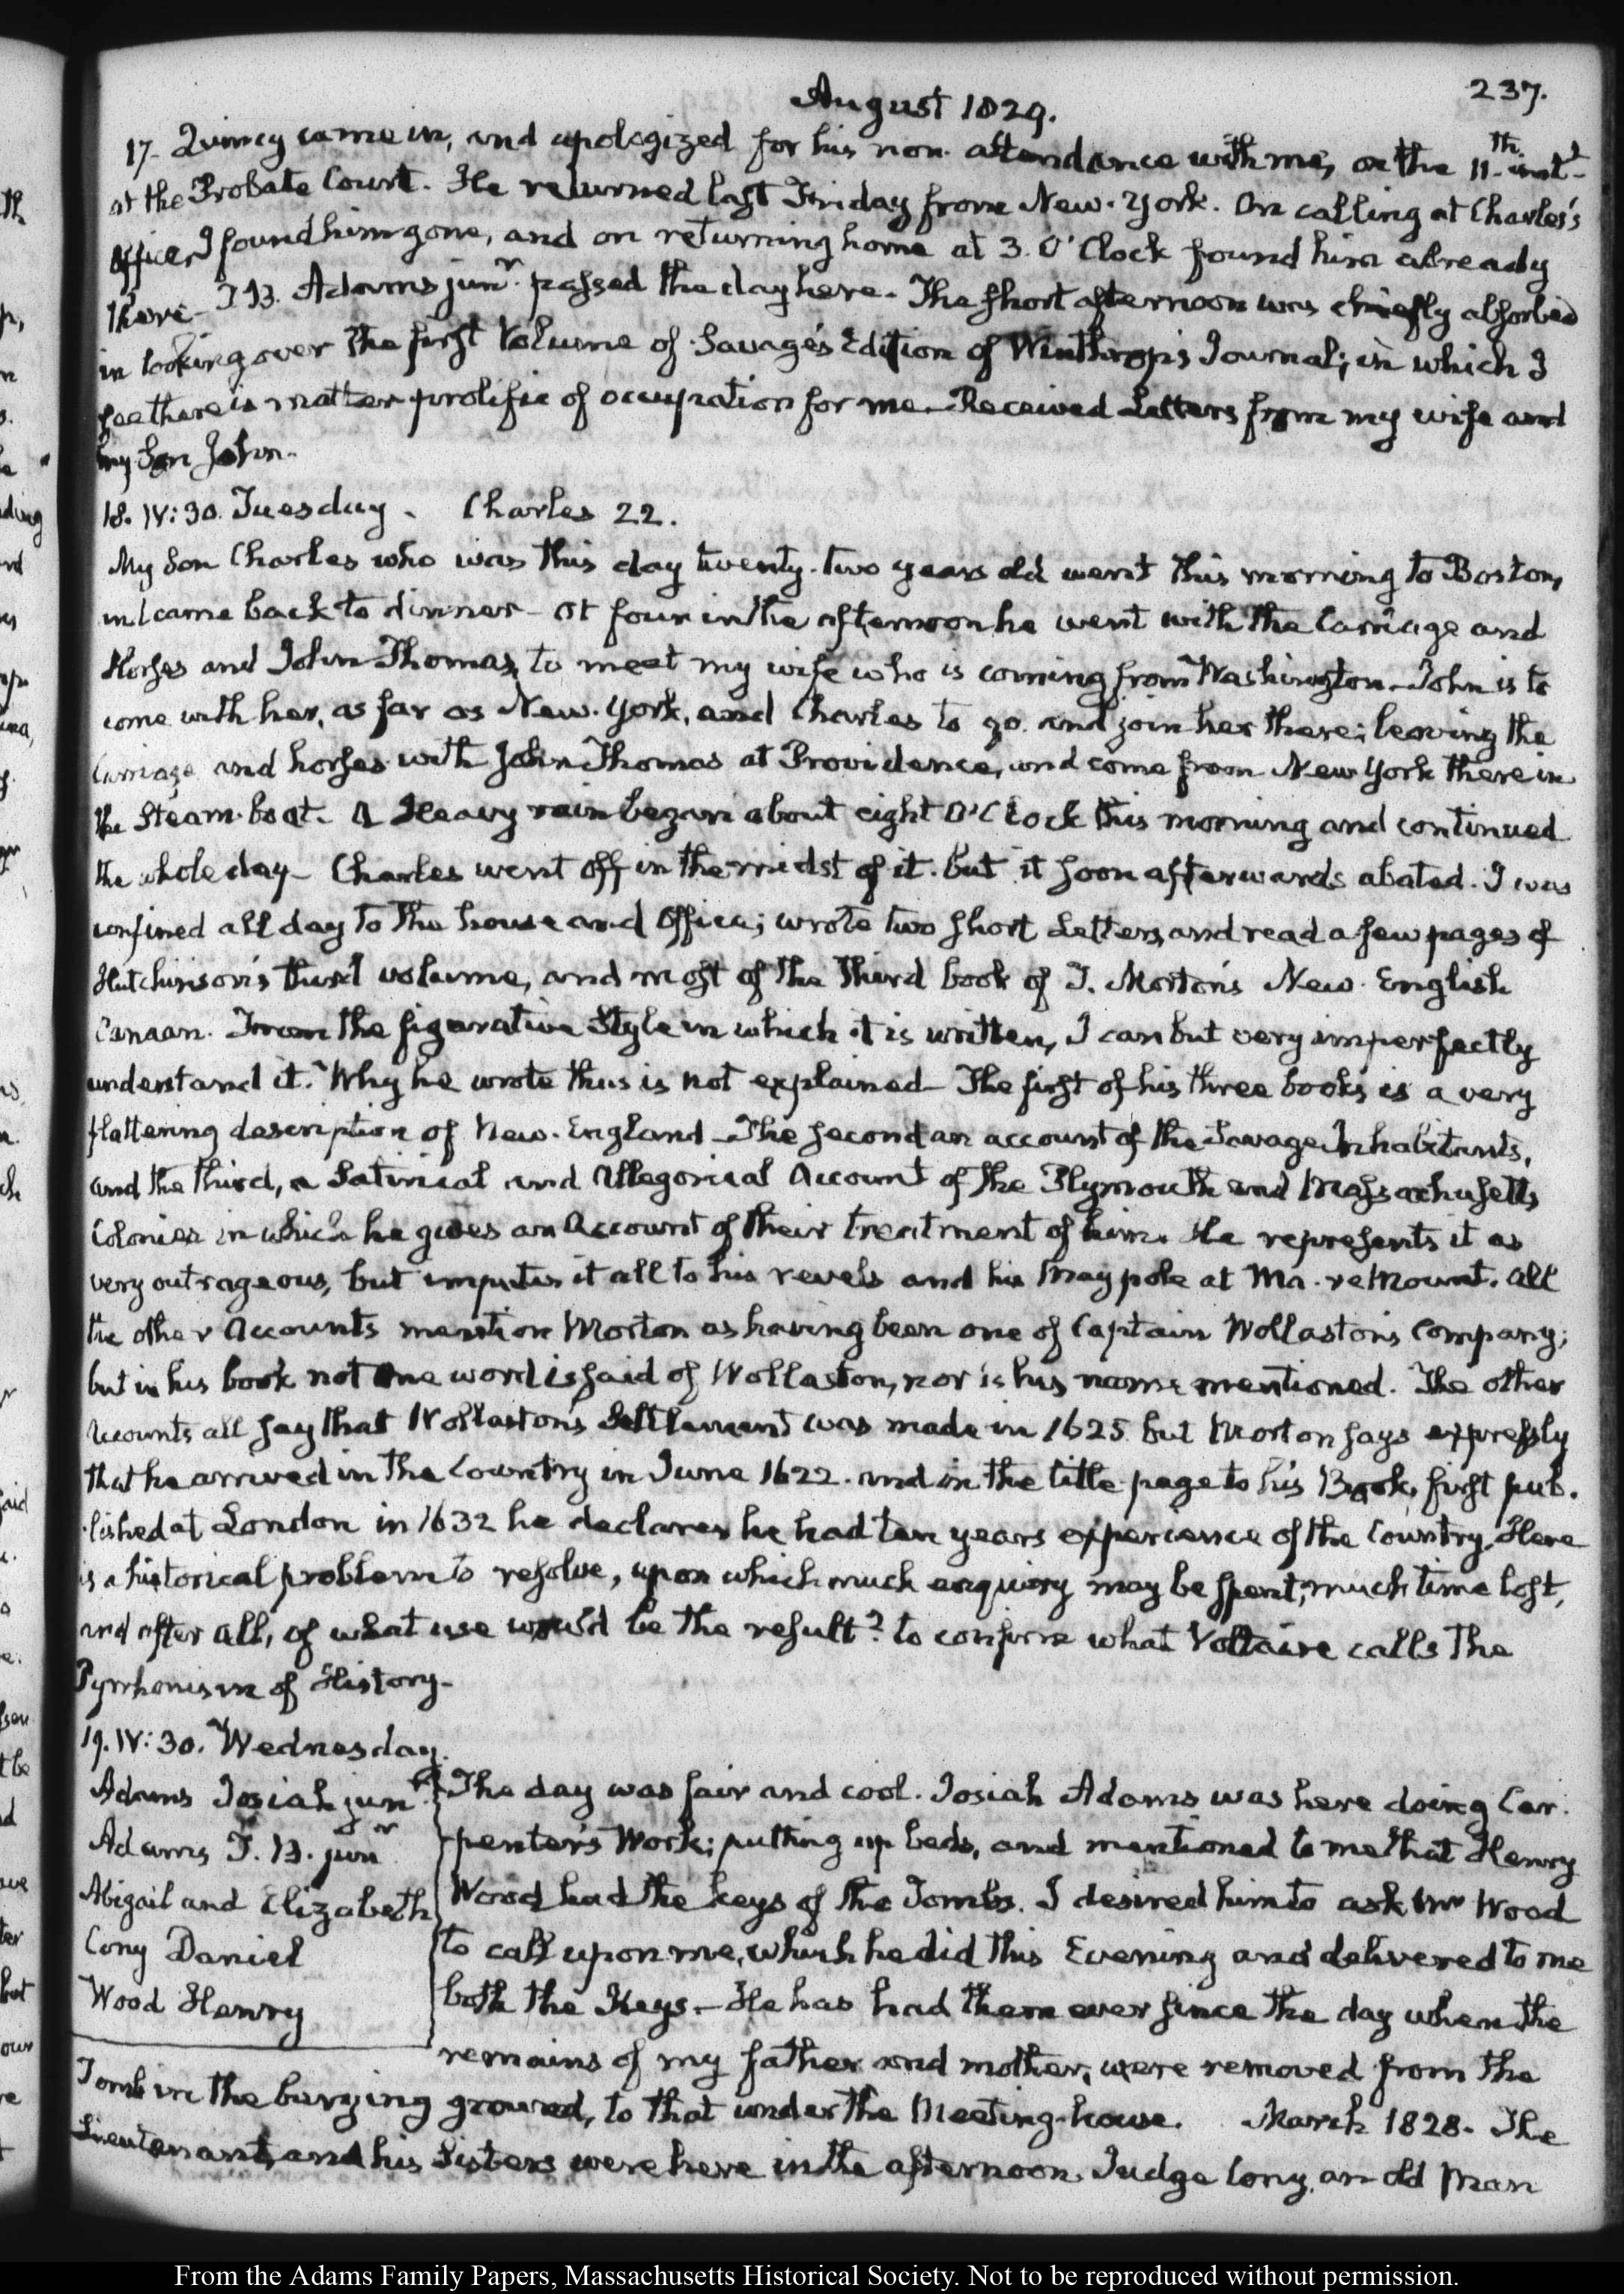 237.
August 1829.
17. Quincy came in, and apologized for his non-attendance with me, on the 11th. inst.
at the Probate Court. He returned last Friday from New-York. On calling at Charles's
Office, I found him gone, and on returning home at 3. O'Clock found him already
there. T. B. Adams junr. passed the day here. The short afternoon was chiefly absorbed
in looking over the first Volume of Savage's Edition of Winthrop's Journal; in which I
see there is matter prolific of occupation for me. Received Letters from my wife and
my Son John.
18. IV:30. Tuesday. Charles 22.
My Son Charles who was this day twenty-two years old went this morning to Boston,
and came back to dinner. At four in the afternoon he went with the Carriage and
Horses and John Thomas, to meet my wife who is coming from Washington. John is to
come with her, as far as New-York, and Charles to go and join her there; leaving the
Carriage and horses with John Thomas at Providence, and come from New York there in
the Steam-boat. A Heavy rain began about eight O'Clock this morning and continued
the whole day. Charles went off in the midst of it. But it soon afterwards abated. I was
confined all day to the house and Office; wrote two short Letters, and read a few pages of
Hutchinson's third volume, and most of the Third book of T. Morton's New-English
Canaan. From the figurative Style in which it is written, I can but very imperfectly
understand it. Why he wrote thus is not explained. The first of his three books is a very
flattering description of New-England. The second an account of the Savage Inhabitants,
and the third, a Satirical and Allegorical Account of the Plymouth and Massachusetts
Colonies in which he gives an Account of their treatment of him. He represents it as
very outrageous, but imputes it all to his revels and his Maypole at Ma-re Mount. All
the other Accounts mention Morton as having been one of Captain Wollaston's Company;
but in his book not One word is said of Wollaston, nor is his name mentioned. The other
Accounts all say that Wollaston's Settlement was made in 1625 but Morton says expressly
that he arrived in the Country in June 1622. and in the title page to his Book, first pub-
lished at London in 1632 he declares he had ten years experience of the Country. Here
is a historical problem to resolve, upon which much enquiry may be spent, much time lost,
and after all, of what use would be the result? to confirm what Voltaire calls the
Pyrrhonism of History.
19. IV:30. Wednesday.
Adams Josiah junr.
Adams T. B. junr
Abigail and Elizabeth
Cony Daniel
Wood Henry
The day was fair and cool. Josiah Adams was here doing Car-
penter's Work; putting up beds, and mentioned to me that Henry
Wood had the keys of the Tombs. I desired him to ask Mr Wood
to call upon me, which he did this Evening and delivered to me
both the Keys. He has had them ever since the day when the
remains of my father and mother, were removed from the
Tomb in the burying ground, to that under the Meeting-house. March 1828. The
Lieutenant, and his Sisters were here in the afternoon. Judge Cony, an old Man
From the Adams Family Papers, Massachusetts Historical Society. Not to be reproduced without permission.